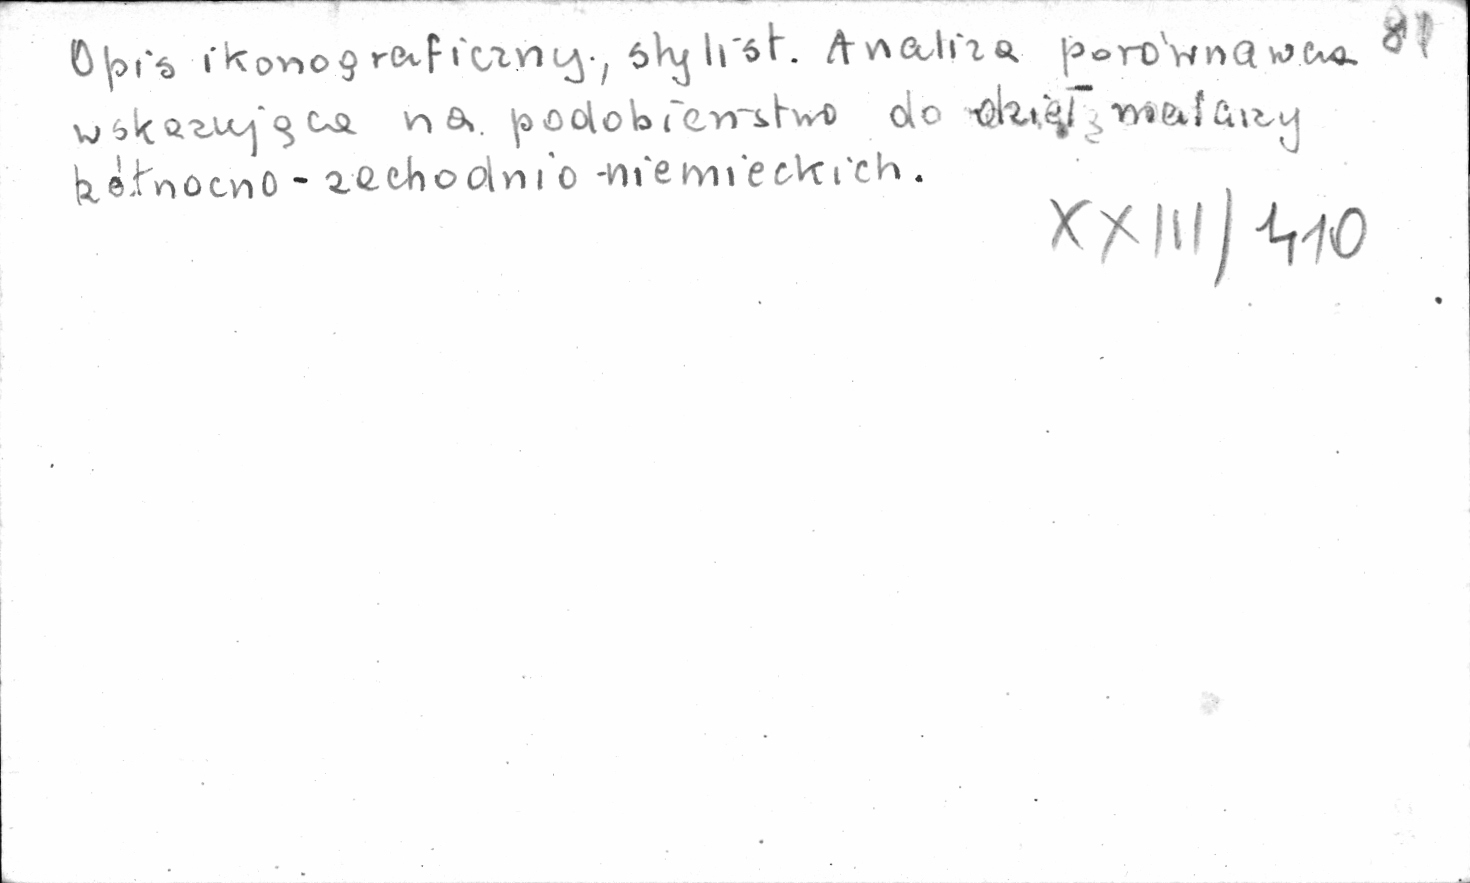 Opis ikonograficzny, stylist. Analiza porównawcza 81
wskazująca na podobieństwo do dzieł malarzy
północno-zachodnio-niemieckich.
XXIII/410